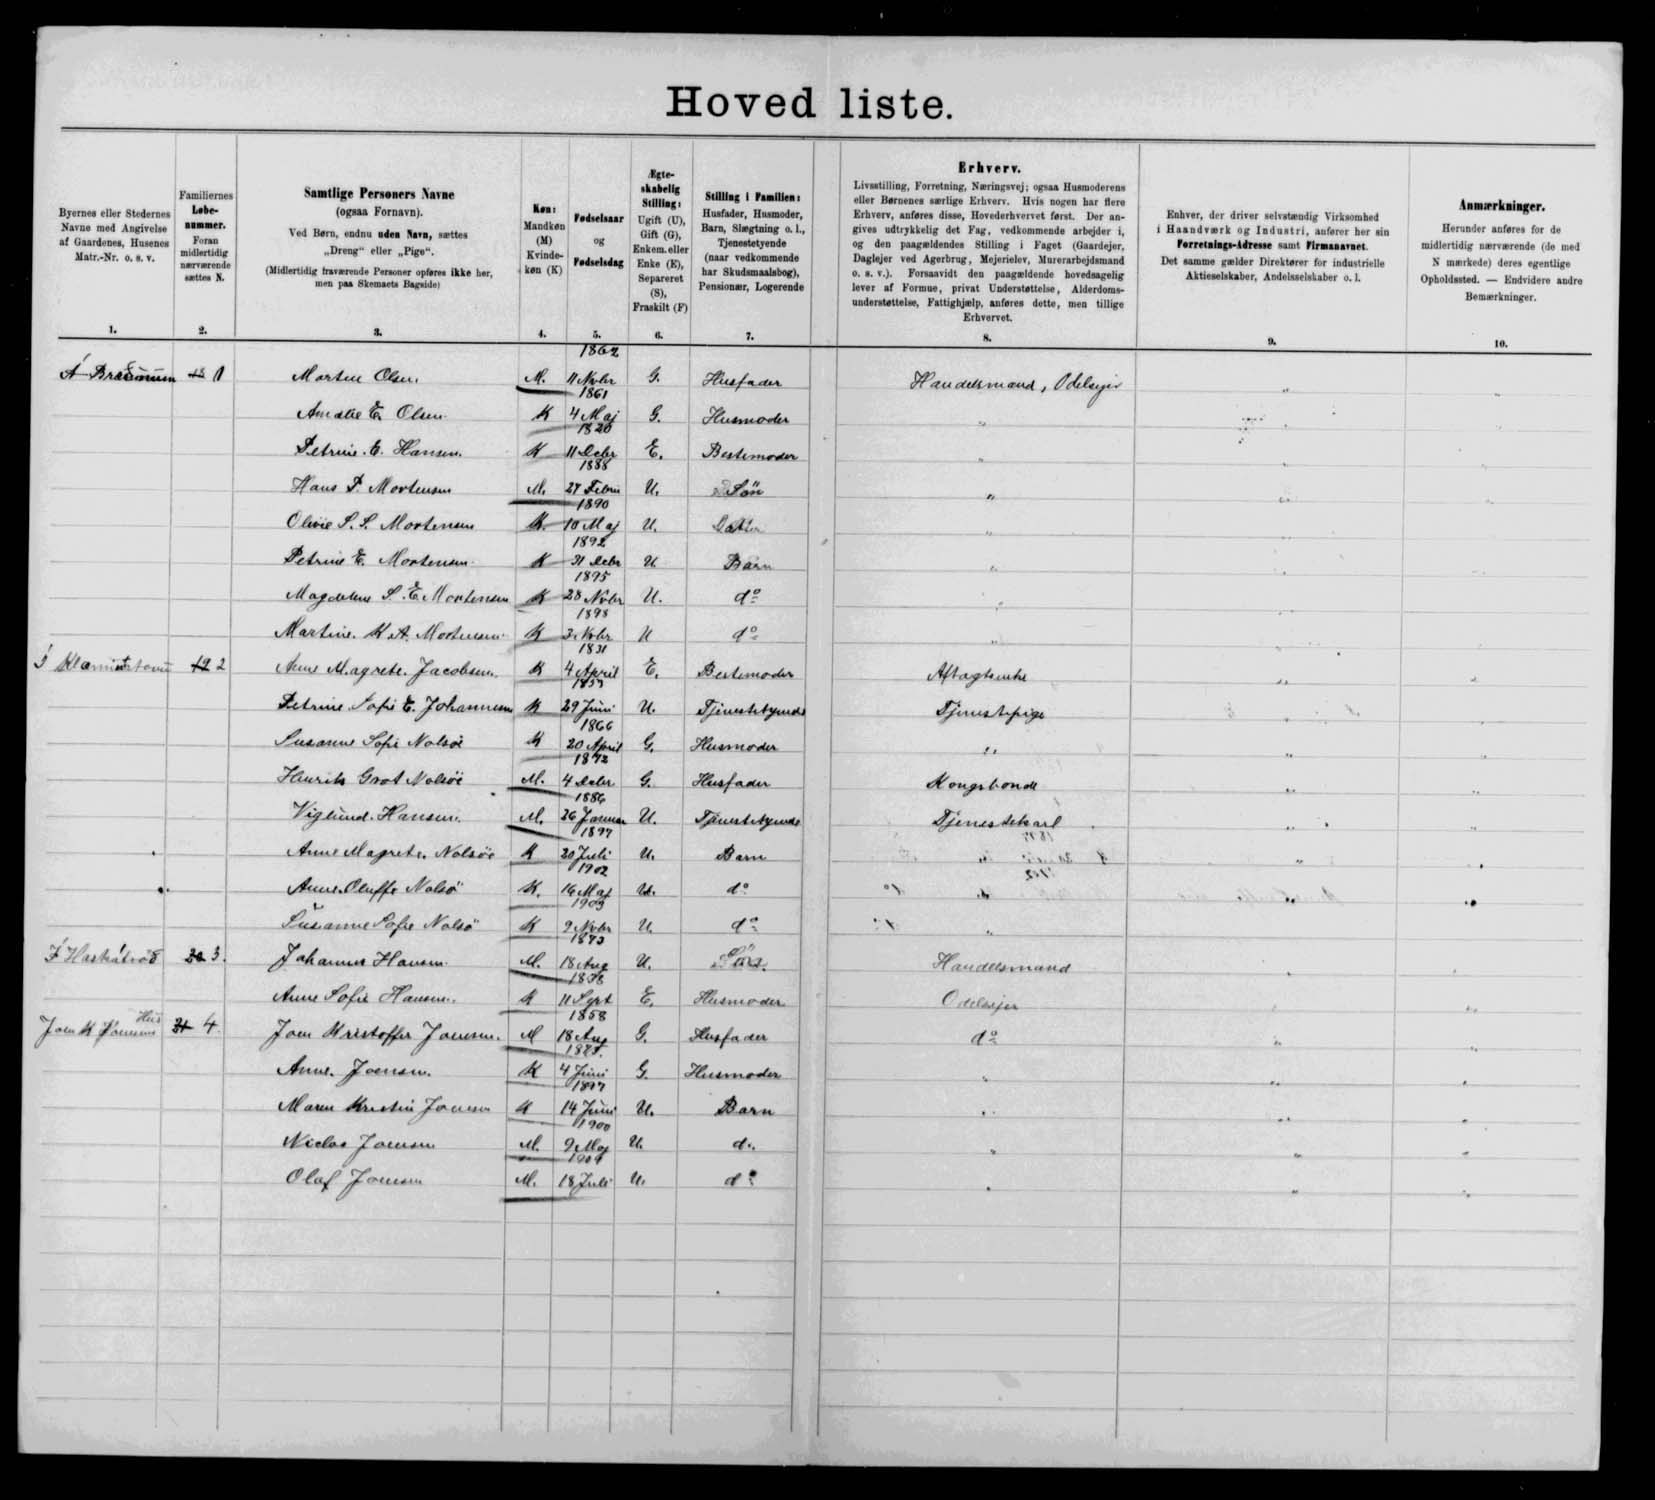 Hoved liste.
Byernes eller Stedernes Navne med Angivelse af Gaardenes, Husenes Matr.-Nr. o. s. v.
Familiernes Løbenummer. Foran midlertidig nærværende sættes N.
Samtlige Personers Navne
(ogsaa Fornavn).
Ved Børn, endnu uden Navn, sættes „Dreng“ eller „Pige“.
(Midlertidig fraværende Personer opføres ikke her, men paa Skemaets Bagside)
Køn: Mandkøn (M) Kvindekøn (K)
Fødselsaar og Fødselsdag
Ægteskabelig Stilling: Ugift (U), Gift (G), Enkem. eller Enke (E), Separeret (S), Fraskilt (F)
Stilling i Familien: Husfader, Husmoder, Barn, Slægtning o. l., Tjenestetyende (naar vedkommende har Skudsmaalsbog), Pensionær, Logerende
Erhverv.
Livsstilling, Forretning, Næringsvej; ogsaa Husmoderens eller Børnenes særlige Erhverv. Hvis nogen har flere Erhverv, anføres disse, Hovederhvervet først. Der angives udtrykkelig det Fag, vedkommende arbejder i, og den paagældendes Stilling i Faget (Gaardejer, Daglejer ved Agerbrug, Mejerielev, Murerarbejdsmand o. s. v.). Forsaavidt den paagældende hovedsagelig lever af Formue, privat Understøttelse, Alderdomsunderstøttelse, Fattighjælp, anføres dette, men tillige Erhvervet.
Enhver, der driver selvstændig Virksomhed i Haandværk og Industri, anfører her sin Forretnings-Adresse samt Firmanavnet. Det samme gælder Direktører for industrielle Aktieselskaber, Andelsselskaber o. l.
Anmærkninger.
Herunder anføres for de midlertidig nærværende (de med N mærkede) deres egentlige Opholdssted. — Endvidere andre Bemærkninger.
1. 2. 3. 4. 5. 6. 7. 8. 9. 10.
18 1 Morten Olsen. M. 1862 11 Novbr G. Husfader Handelsmand, Odelsejer
Amalie E. Olsen K 1861 4 Maj G. Husmoder
Petrine. E. Hansen. K 1820 11 Decbr E. Bestemoder
Hans P. Mortensen M. 1888 27 U. Søn
Olivie S. S. Mortensen K. 1890 10 Maj U. Datter
Petrine E. Mortensen K 1892 31 Decbr U Barn
Magdalene S. E. Mortensen K 1895 28 Novbr U. do
Martine. K. A. Mortensen K 1898 3 Novbr U do
19 2 Anne Magrete. Jacobsen. K 1831 4 April E. Bestemoder Aftagtsenke
Petrine Sofie E. Johannesen K 29 Juni U. Tjenestetyende Tjenestepige
Susanne Sofie Nolsöe K 1866 20 April G. Husmoder
Henrik Grot Nolsöe M. 1872 4 Decbr G. Husfader Kongsbonde
Viglund. Hansen. M. 1886 26 Januar U. Tjenestetyende Tjenestekarl
Anne Magrete. Nolsöe K 1897 20 Juli U. Barn
Anne. Oluffe Nolsö K. 1902 16 Maj U. do
Susanne Sofie Nolsö K 9 Novbr U. do
20 3. Johannes Hansen M. 1873 18 Aug U. Søn. Handelsmand
Anne Sofie Hansen. K 11 Sept E. Husmoder Odelsejer
Joen K Joensens Hus 21 4. Joen Kristoffer Joensen. M 1858 18 Aug G. Husfader do
Anne. Joensen. K 4 Juni G. Husmoder
Maren Kristine Joensen K 1897 14 Juni U. Barn
Niclas Joensen M. 1900 9 Maj U. do
Olaf Joensen M. 18 Juli U. do